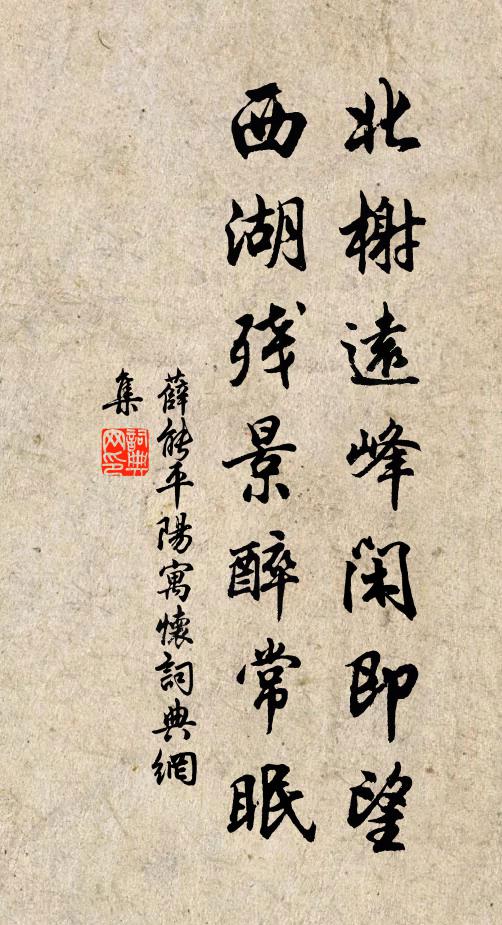 北榭遠峰闲即望
西湖残景醉常眠
薛能平陽寓懷詞典網
集
詞典
网印